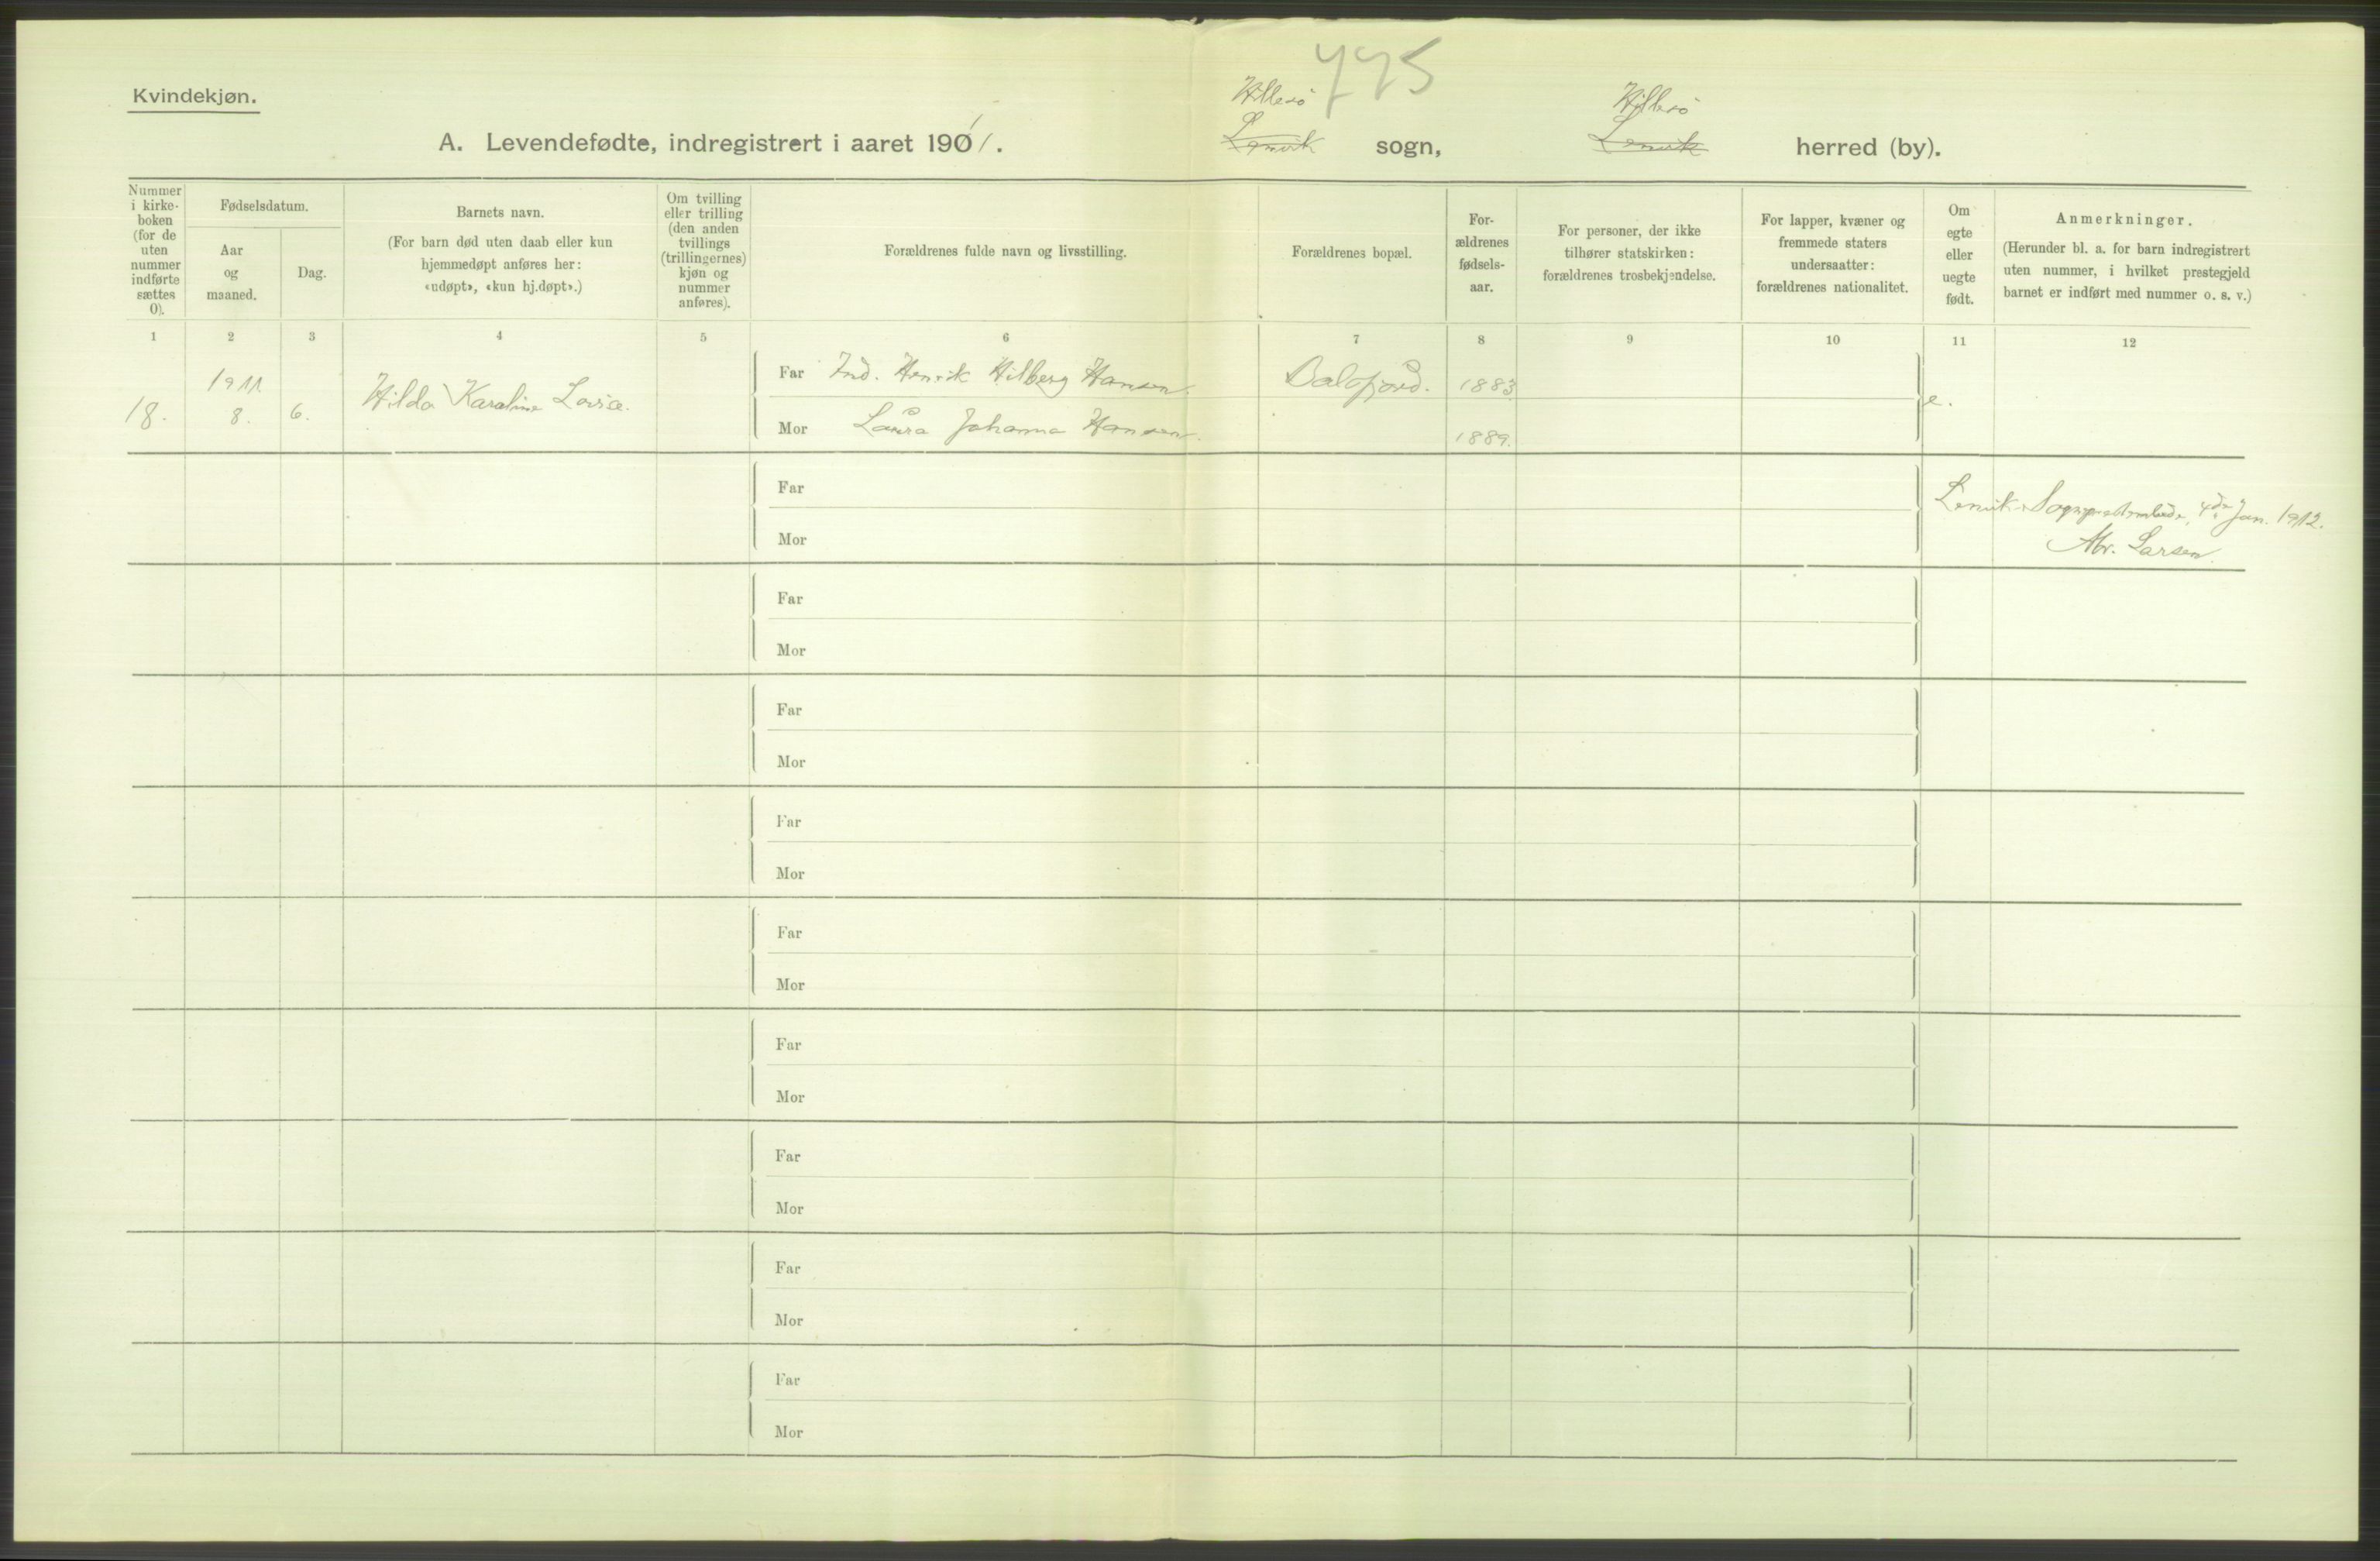 Kvindekjøn.
775
A. Levendefødte, indregistrert i aaret 1901 1.
Hillesö
Lenvik sogn,
Hillesö
Lenvik herred (by).
Nummer
i kirke-
boken
(for de
uten
nummer
indførte
sættes
0).
Fødselsdatum.
Aar
og
maaned.
Dag.
Barnets navn.
(For barn død uten daab eller kun
hjemmedøpt anføres her:
«udøpt», «kun hj.døpt».)
Om tvilling
eller trilling
(den anden
tvillings
(trillingernes)
kjøn og
nummer
anføres).
Forældrenes fulde navn og livsstilling.
Forældrenes bopæl.
For-
ældrenes
fødsels-
aar.
For personer, der ikke
tilhører statskirken:
forældrenes trosbekjendelse.
For lapper, kvæner og
fremmede staters
undersaatter:
forældrenes nationalitet.
Om
egte
eller
uegte
født.
Anmerkninger.
(Herunder bl. a. for barn indregistrert
uten nummer, i hvilket prestegjeld
barnet er indført med nummer o. s. v.)
1 2 3 4 5 6 7 8 9 10 11 12
1911
18. 8. 6. Hilda Karoline Lovise.
Far Ind. Henrik Hilberg Hansen. Balsfjord. 1883
e.
Mor Laura Johanna Hansen. 1889.
Far
Lenvik Sogneprestembede, 4de Jan. 1912.
Mor
Abr. Larsen
Far
Mor
Far
Mor
Far
Mor
Far
Mor
Far
Mor
Far
Mor
Far
Mor
Far
Mor